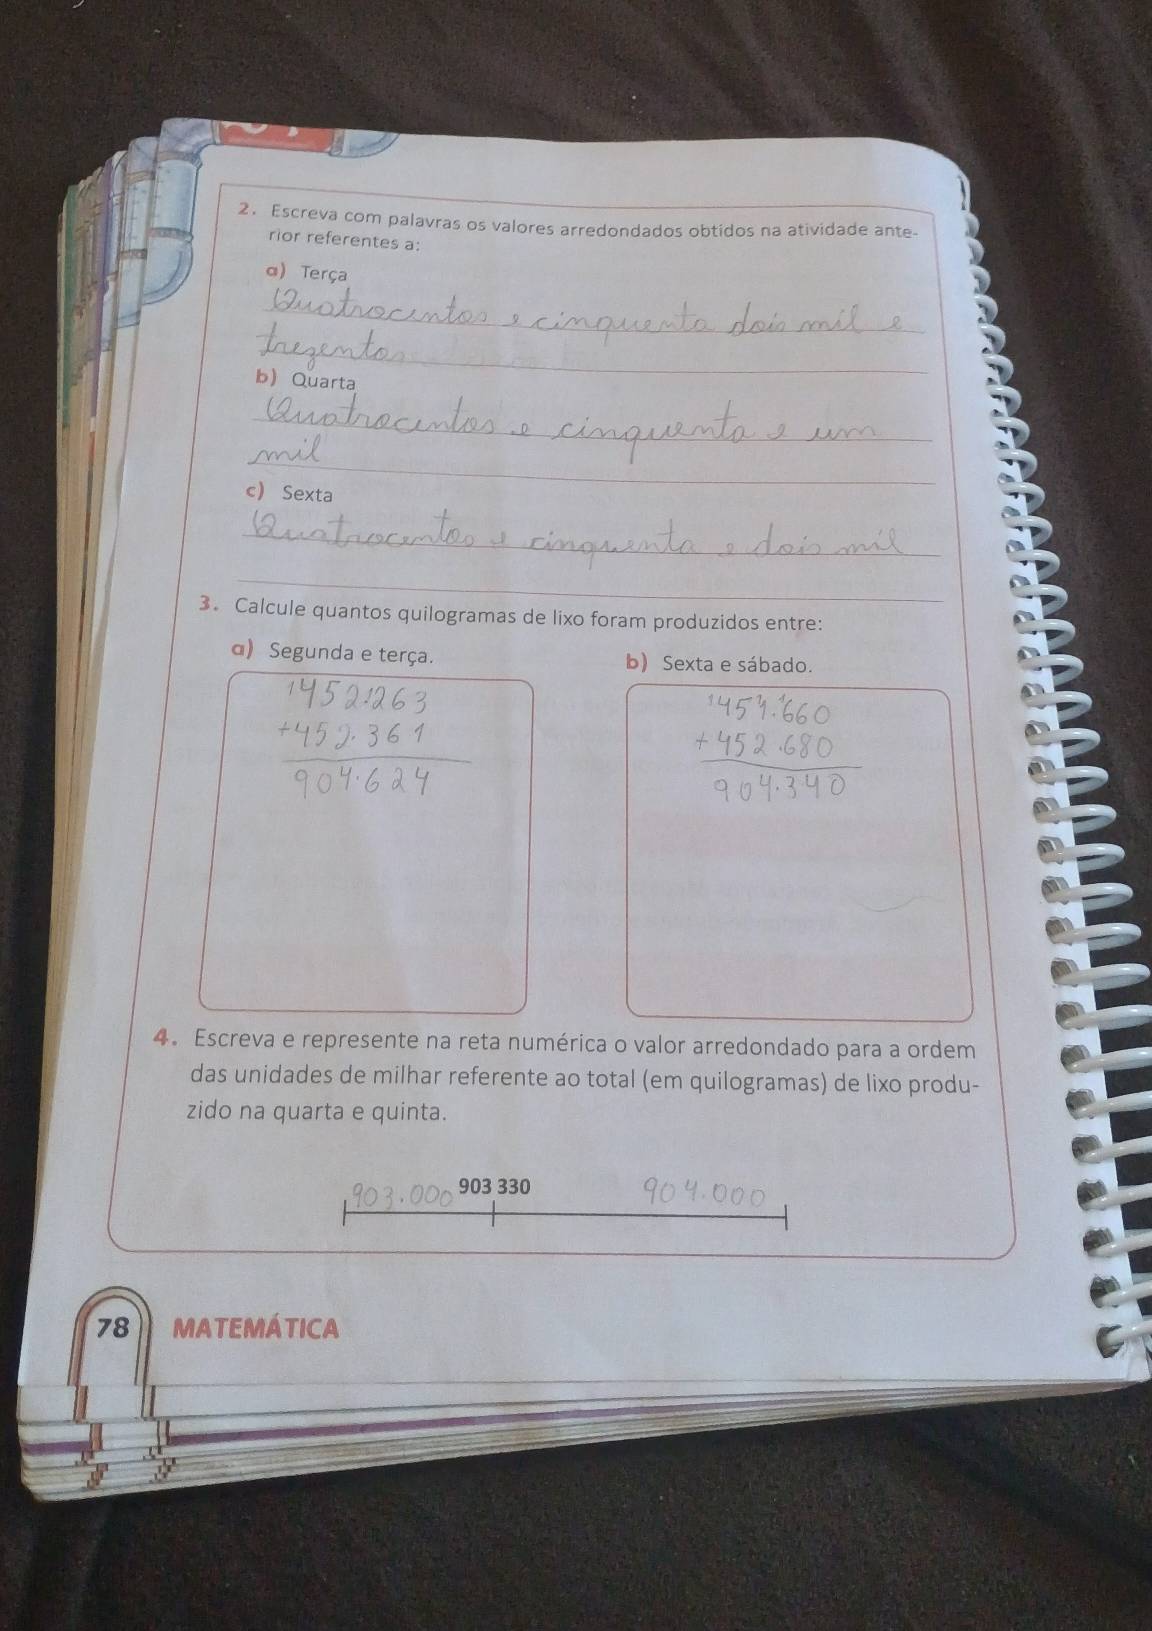 2. Escreva com palavras os valores arredondados obtidos na atividade ante-
rior referentes a:
a) Terça
Quatrocentos e cinquenta dois mil e
trezentos
b) Quarta
Quatrocentos e cinquenta e um
mil
c) Sexta
Quatrocentos e cinquenta e dois mil
3. Calcule quantos quilogramas de lixo foram produzidos entre:
a) Segunda e terça.
b) Sexta e sábado.
1452.263
+452.361
904.624
+452.680
904.340
4. Escreva e represente na reta numérica o valor arredondado para a ordem
das unidades de milhar referente ao total (em quilogramas) de lixo produ-
zido na quarta e quinta.
903.000 903 330 904.000
78 MATEMÁTICA